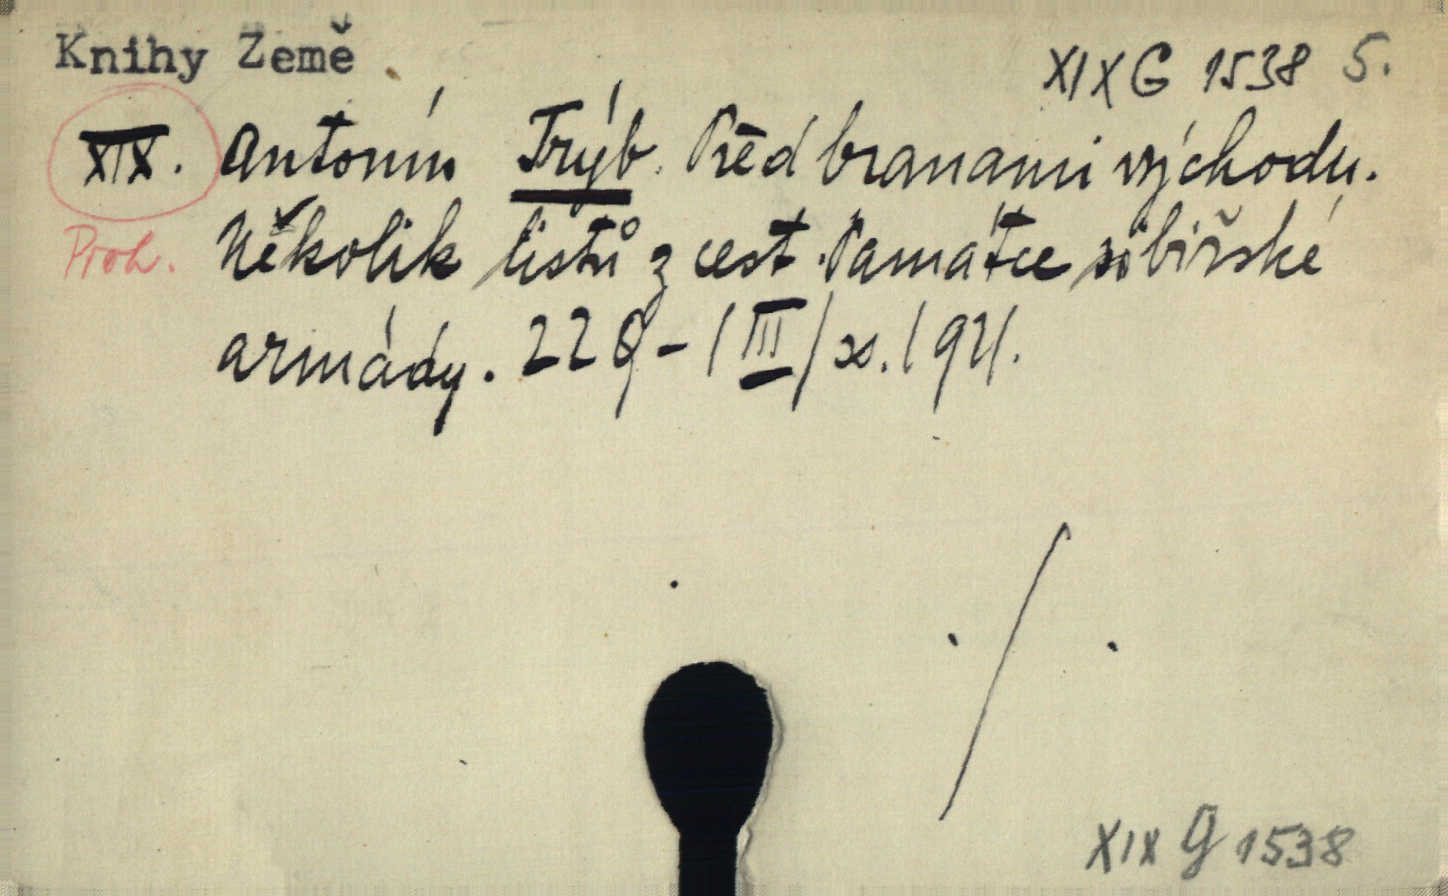 Knihy Země
XIX G 1538 5.
XIX. Antonín Trýb. Před branami východu.
Proh. Několik listů z cest. Památce sibiřské
armády. 229-(III) 1921.
XIX G 1538